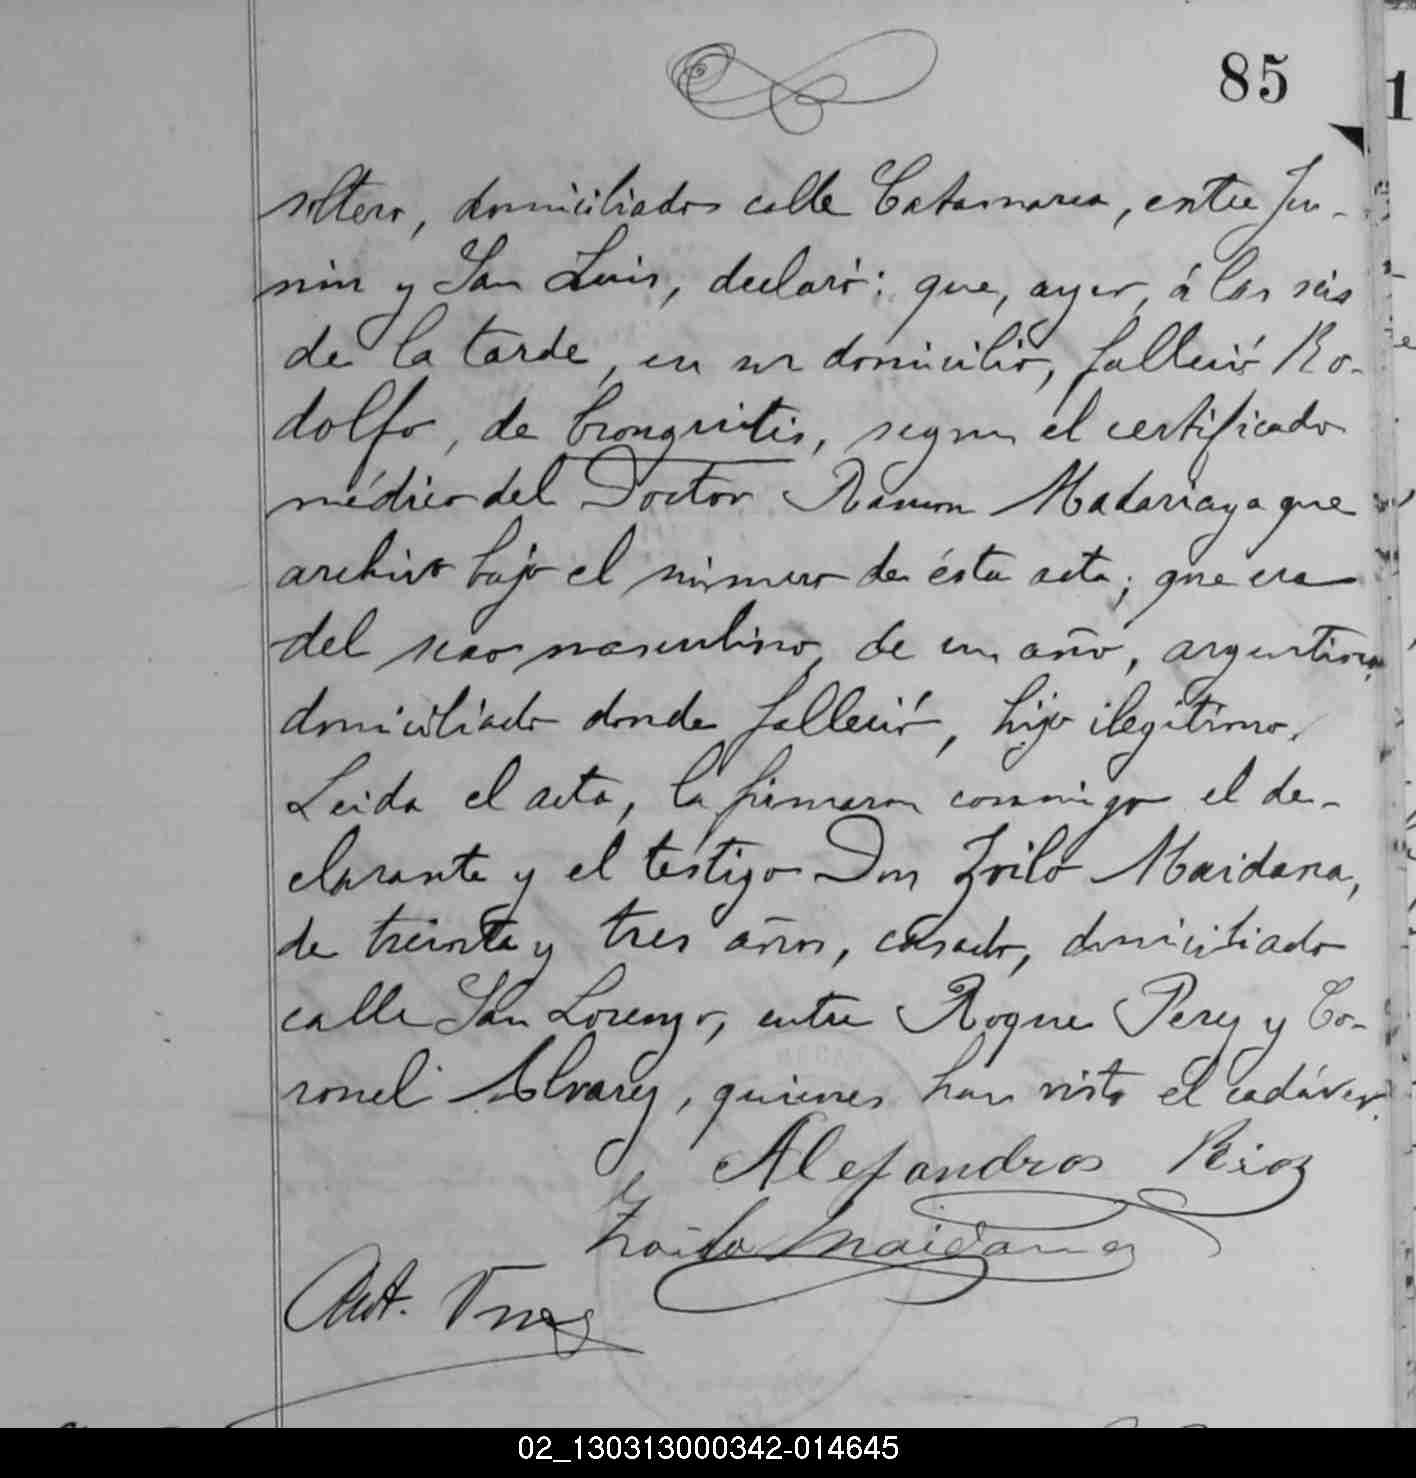 85
soltero, domiciliados calle Catamarca, entre Ju-
nin y San Luis, declaró: que, ayer, á las seis
de la tarde, en su domicilio, falleció Ro-
dolfo, de bronquitis, segun el certificado
médico del Doctor Ramon Madariaga que
archivo bajo el número de ésta acta; que era
del sexo masculino, de un año, argentino,
domiciliado donde falleció, hijo ilegítimo.
Leida el acta, la firmaron conmigo el de-
clarante y el testigo Don Zoilo Maidana,
de treinta y tres años, casado, domiciliado
calle San Lorenzo, entre Roque Perez y Co-
ronel Alvarez, quienes han visto el cadáver.
Alejandros Rioz
Zoilo Maidana
Ant.
02_130313000342-014645